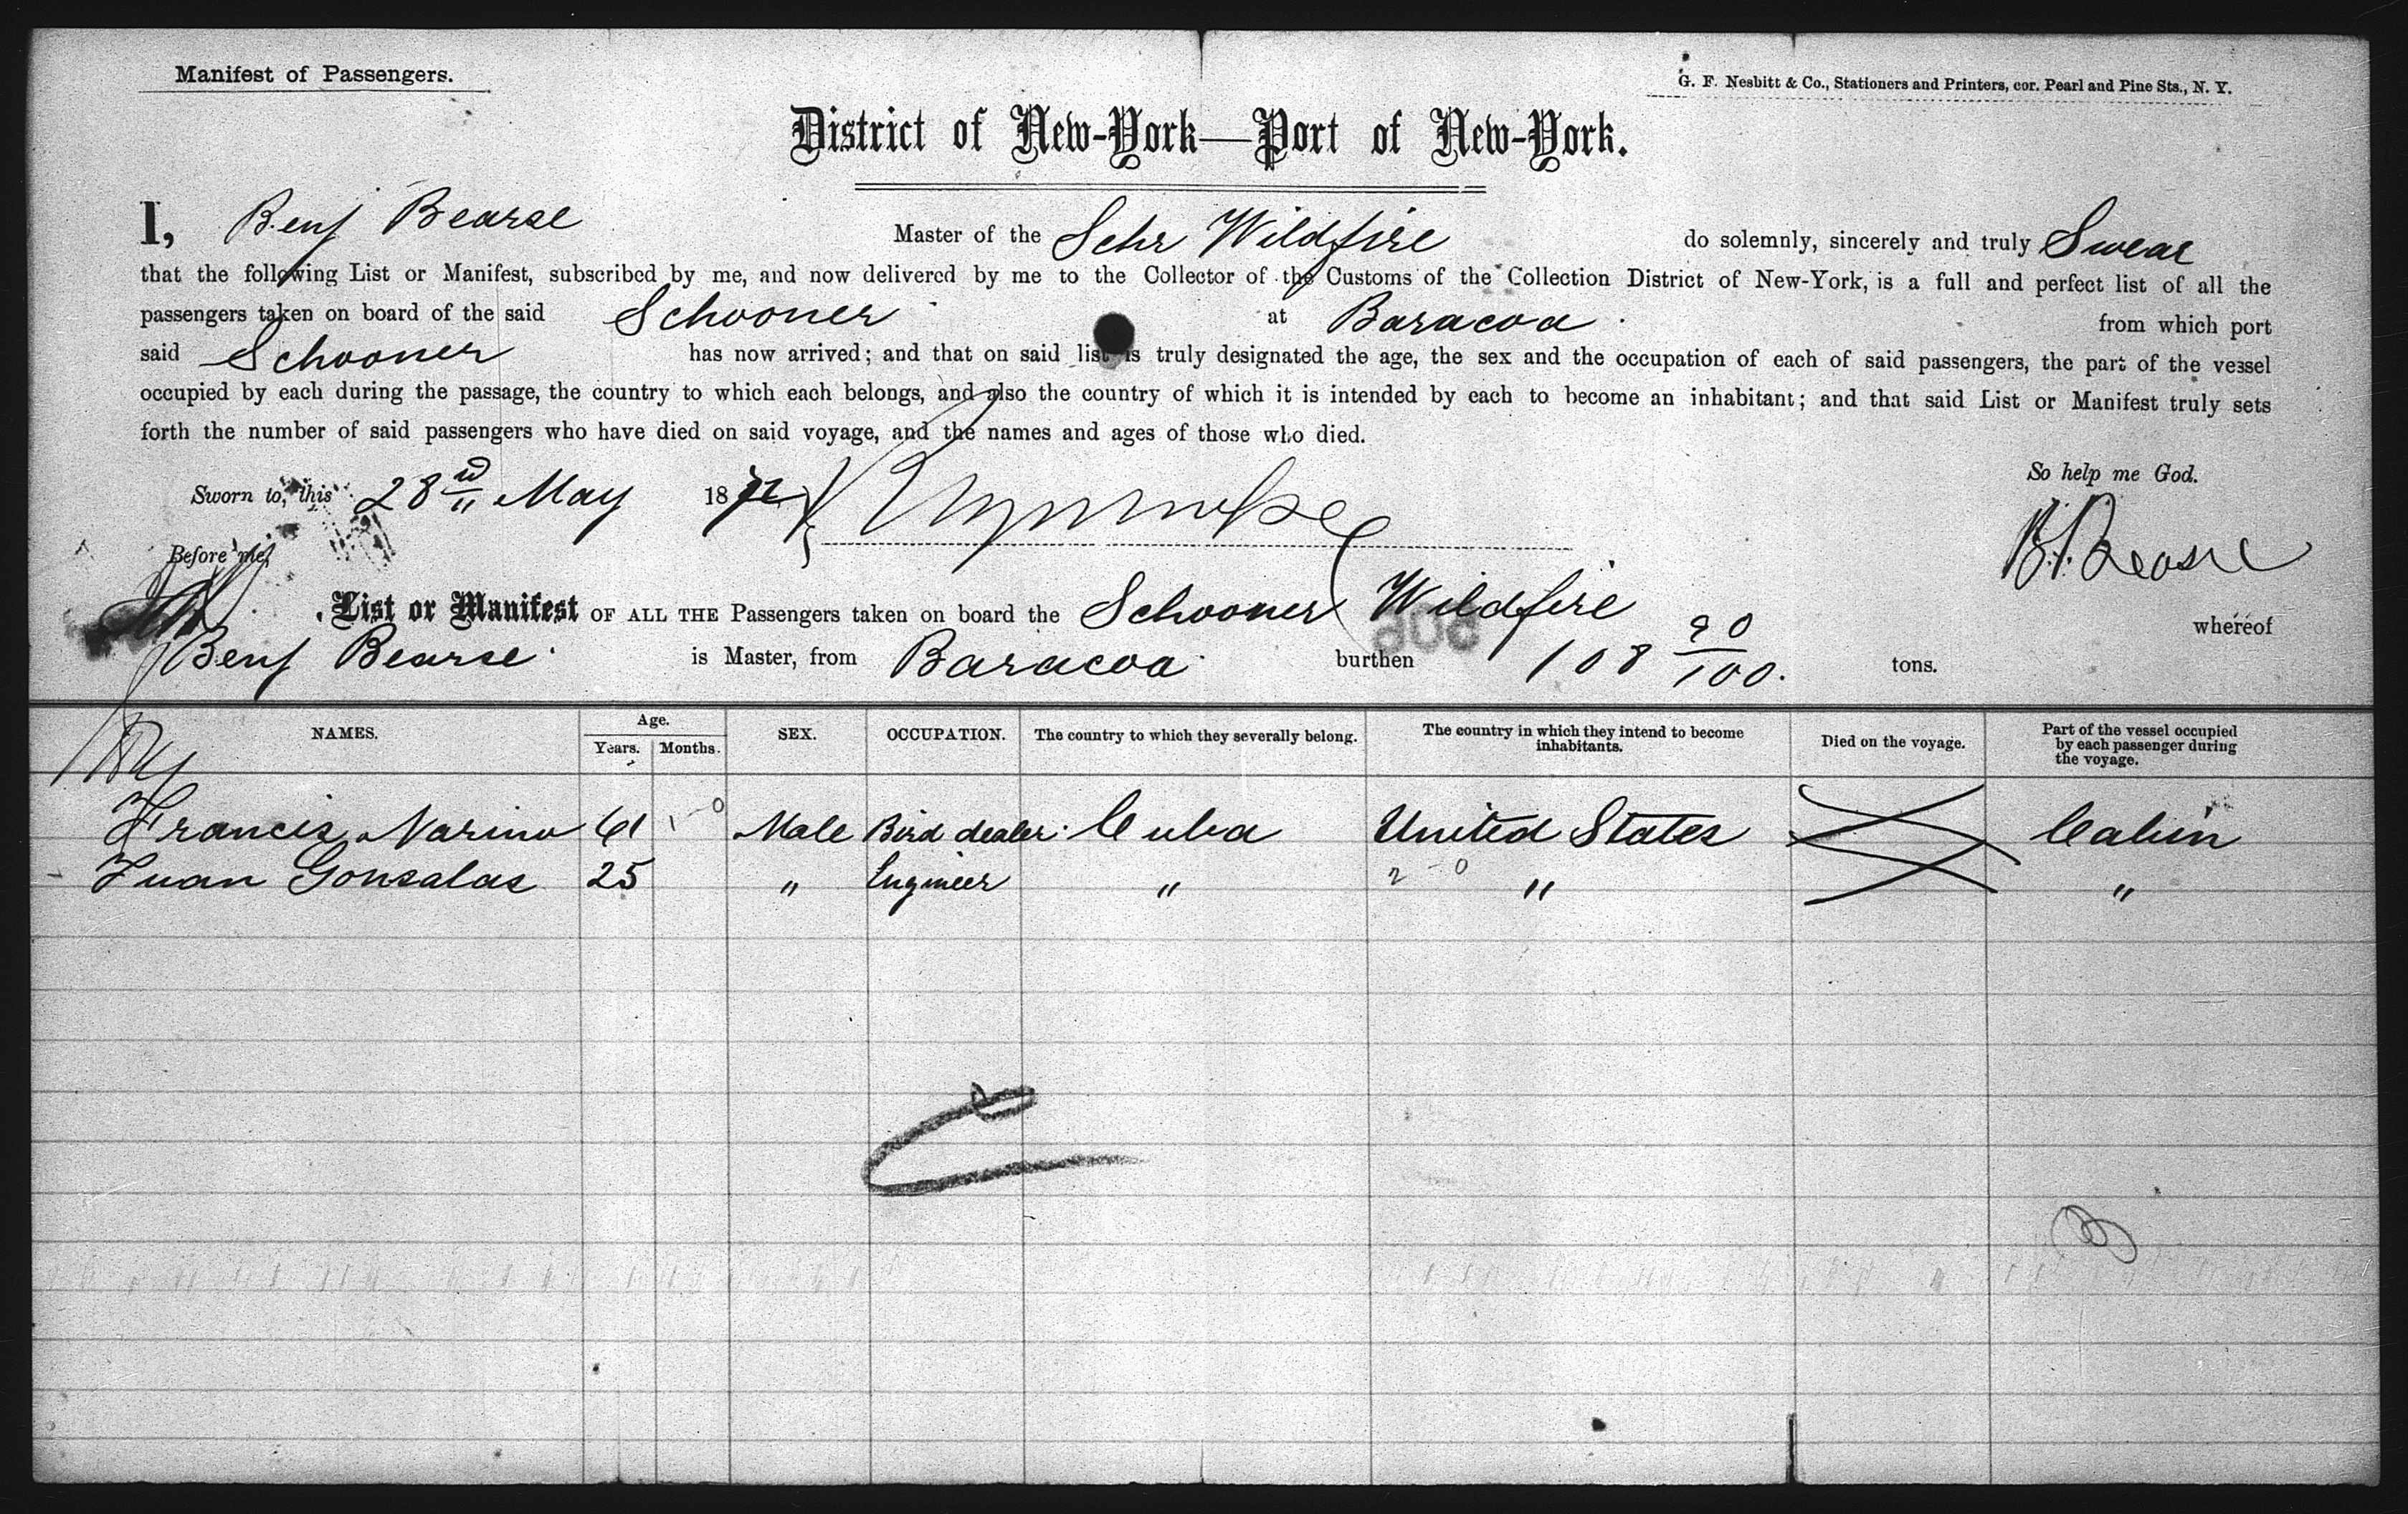 Manifest of Passengers.
G. F. Nesbitt & Co., Stationers and Printers, cor. Pearl and Pine Sts., N. Y.
District of New-York—Port of New-York.
I, Benj Bearse Master of the Schr Wildfire do solemnly, sincerely and truly Swear
that the following List or Manifest, subscribed by me, and now delivered by me to the Collector of the Customs of the Collection District of New-York, is a full and perfect list of all the
passengers taken on board of the said Schooner at Baracoa from which port
said Schooner has now arrived; and that on said list is truly designated the age, the sex and the occupation of each of said passengers, the part of the vessel
occupied by each during the passage, the country to which each belongs, and also the country of which it is intended by each to become an inhabitant; and that said List or Manifest truly sets
forth the number of said passengers who have died on said voyage, and the names and ages of those who died.
So help me God.
Sworn to, this 28 May 1872
B. Bearse
Before me,
List or Manifest OF ALL THE Passengers taken on board the Schooner Wildfire whereof
Benj Bearse is Master, from Baracoa burthen 108 90/100 tons.
NAMES. Age. Years. Months. SEX. OCCUPATION. The country to which they severally belong. The country in which they intend to become inhabitants. Died on the voyage. Part of the vessel occupied by each passenger during the voyage.
Francis Narino 61 Male Bird dealer Cuba United States Cabin
Juan Gonsalas 25 " Engineer " " "